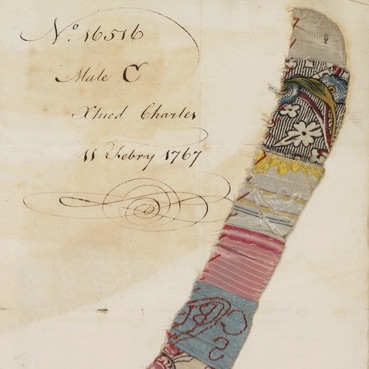 No 16516
Male C
Xned Charles
11 Febry 1767